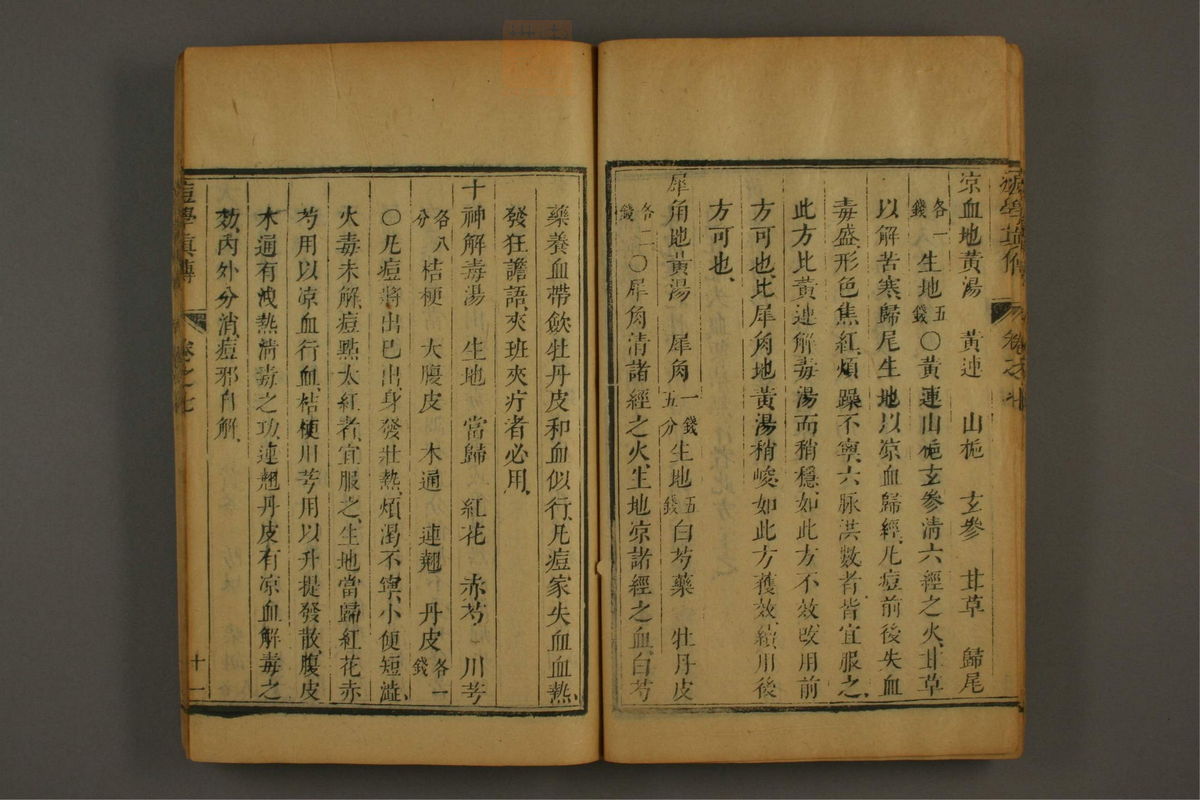 涼血地黃湯　黃連　山梔　玄參　甘草　歸尾
各一錢　生地五錢〇黃連山梔玄參清六經之火甘草
以解苦寒歸尾生地以涼血歸經凡痘前後失血
毒盛形色焦紅煩躁不寧六脉洪數者皆宜服之
此方比黃連解毒湯而稍穩如此方不效改用前
方可也比犀角地黃湯稍峻如此方獲效續用後
方可也
犀角地黃湯　犀角一錢五分生地五錢白芍藥　牡丹皮
各二錢〇犀角清諸經之火生地涼諸經之血白芍
藥養血帶歛牡丹皮和血似行凡痘家失血血熱
發狂譫語夾班夾疔者必用
十神解毒湯　生地　當歸　紅花　赤芍　川芎
各八分　桔梗　大腹皮　木通　連翹　丹皮各一錢
〇凡痘將出已出身發壯熱煩渴不寧小便短澁
火毒未解痘點太紅者宜服之生地當歸紅花赤
芍用以涼血行血桔梗川芎用以升提發散腹皮
木通有洩熱清毒之功連翹丹皮有涼血解毒之
効內外分消痘邪自解
痘學真傳　卷之七　十一